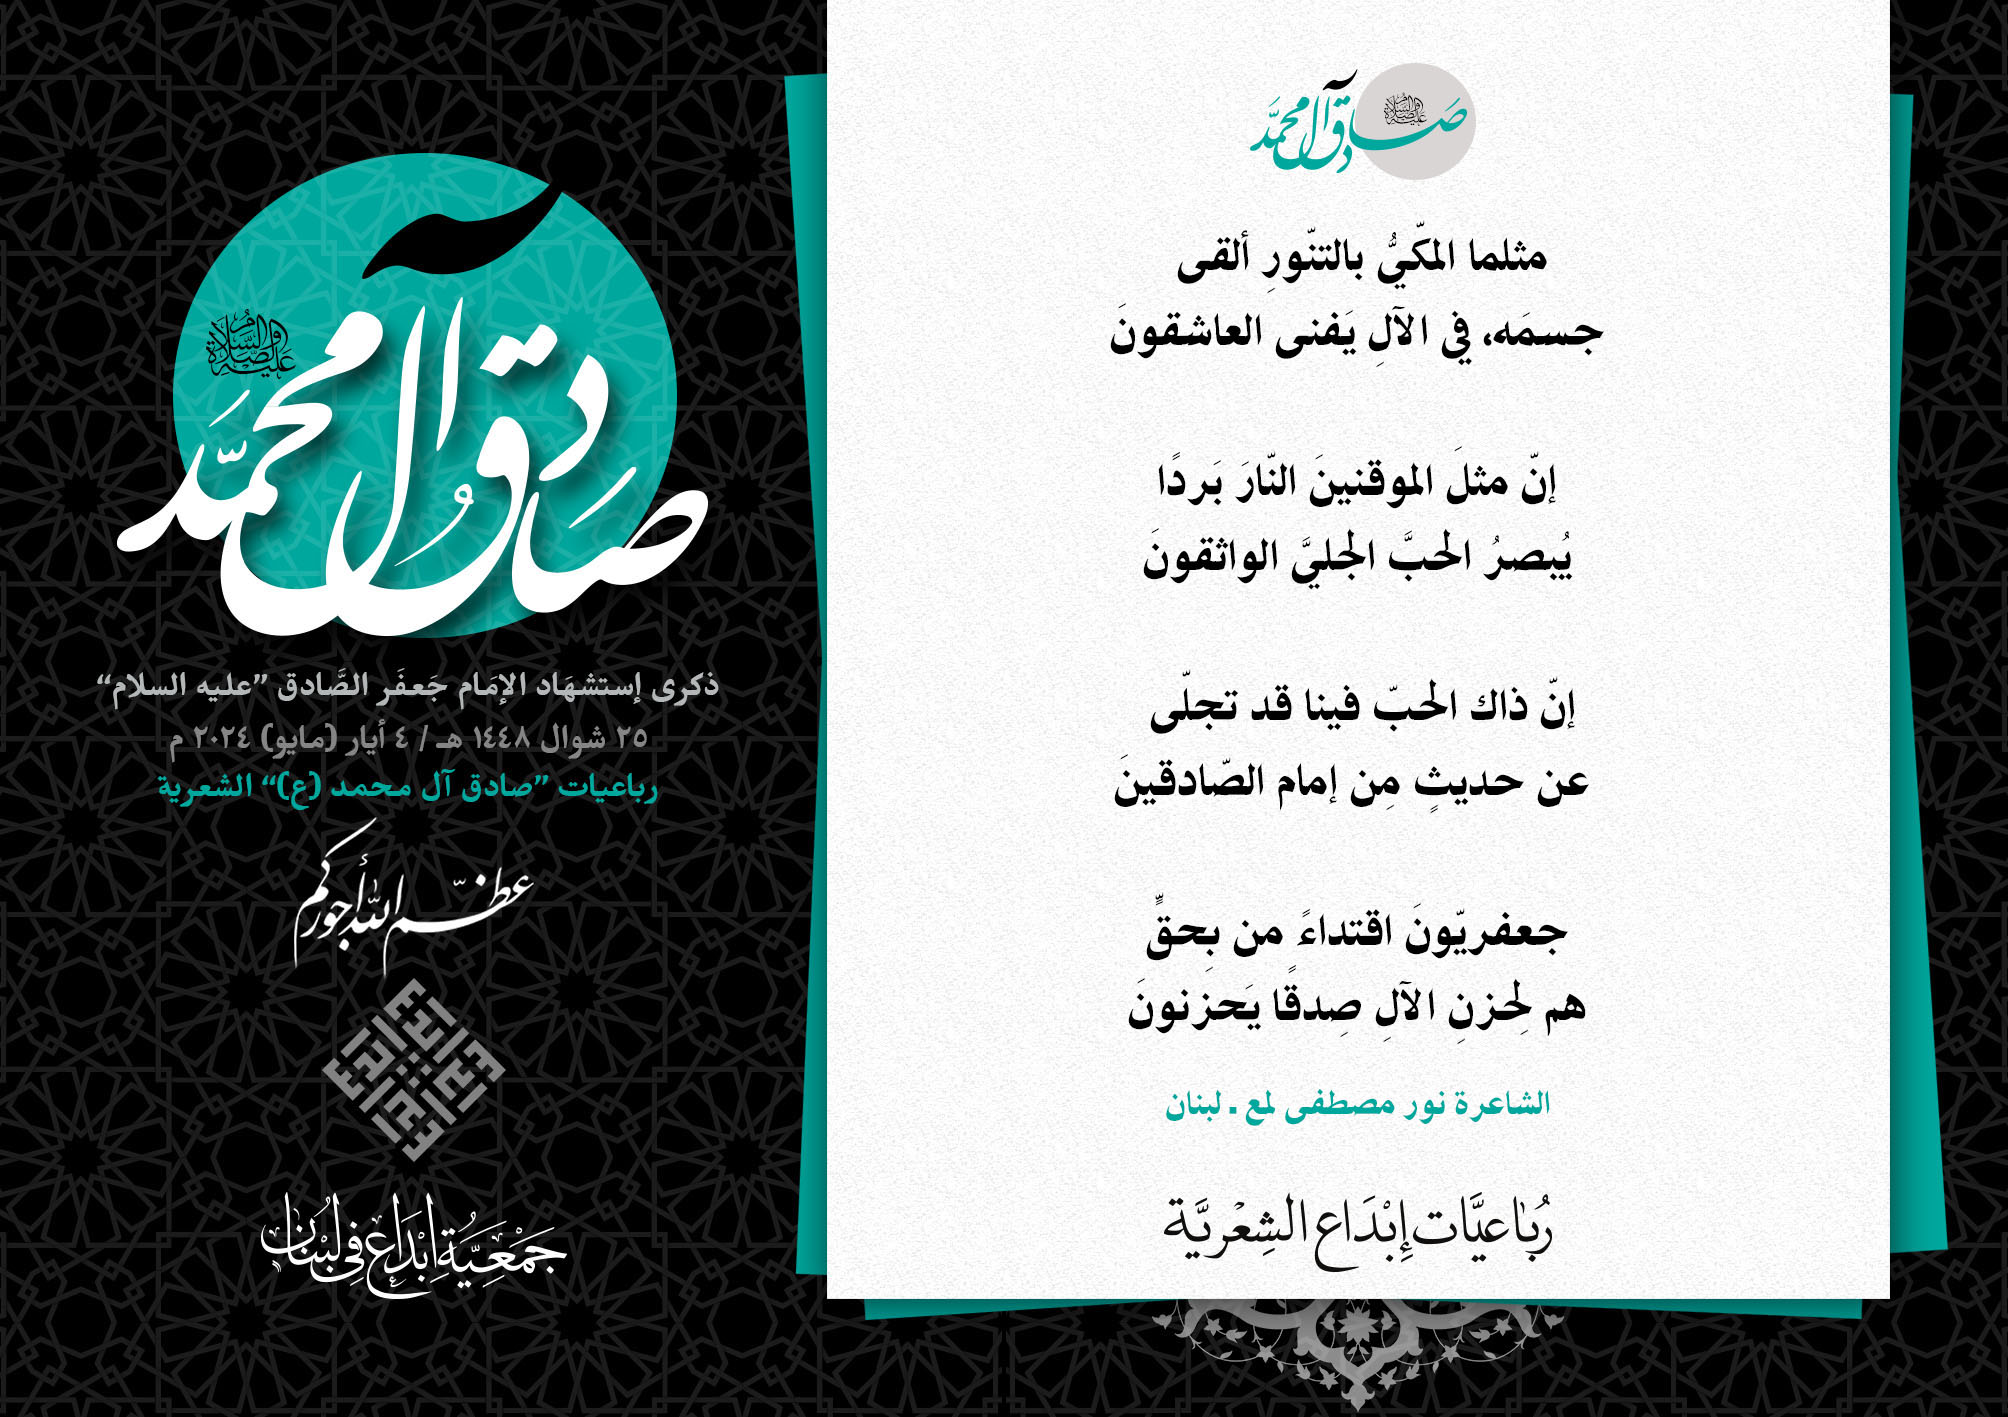 صادق آل محمد
عليه الصلاة والسلام
ذكرى إستشهَاد الإمَام جَعفَر الصَّادق ”عليه السلام“
٢٥ شوال ١٤٤٨ هـ / ٤ أيار (مايو) ٢٠٢٤ م
رباعيات ”صادق آل محمد (ع)“ الشعرية
عظّم الله أجوركم
جَمْعِيَّةِ إِبْدَاع فِي لُبْنَان
صادق آل محمّد
عليه الصلاة والسلام
مثلما المكّيُّ بالتنّورِ ألقى
جسمَه، في الآلِ يَفنى العاشقونَ
إنّ مثلَ الموقنينَ النّارَ بَردًا
يُبصرُ الحبَّ الجليَّ الواثقونَ
إنّ ذاك الحبّ فينا قد تجلّى
عن حديثٍ مِن إمام الصّادقينَ
جعفريّونَ اقتداءً من بِحقٍّ
هم لِحزنِ الآلِ صِدقًا يَحزنونَ
الشاعرة نور مصطفى لمع . لبنان
رُبَاعيَّات إِبْدَاع الشِعْريَّة